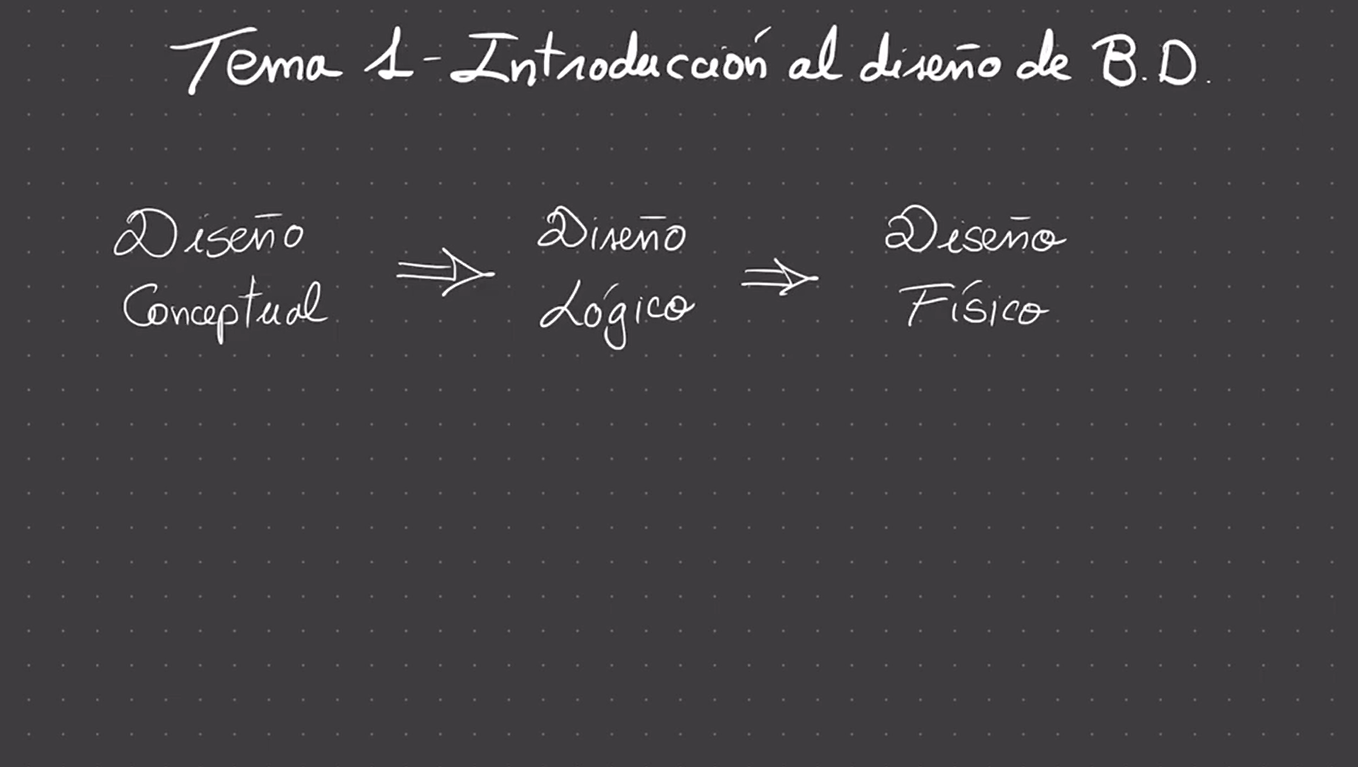 Tema 1 - Introducción al diseño de B.D.
Diseño Conceptual ⇒ Diseño Lógico ⇒ Diseño Físico